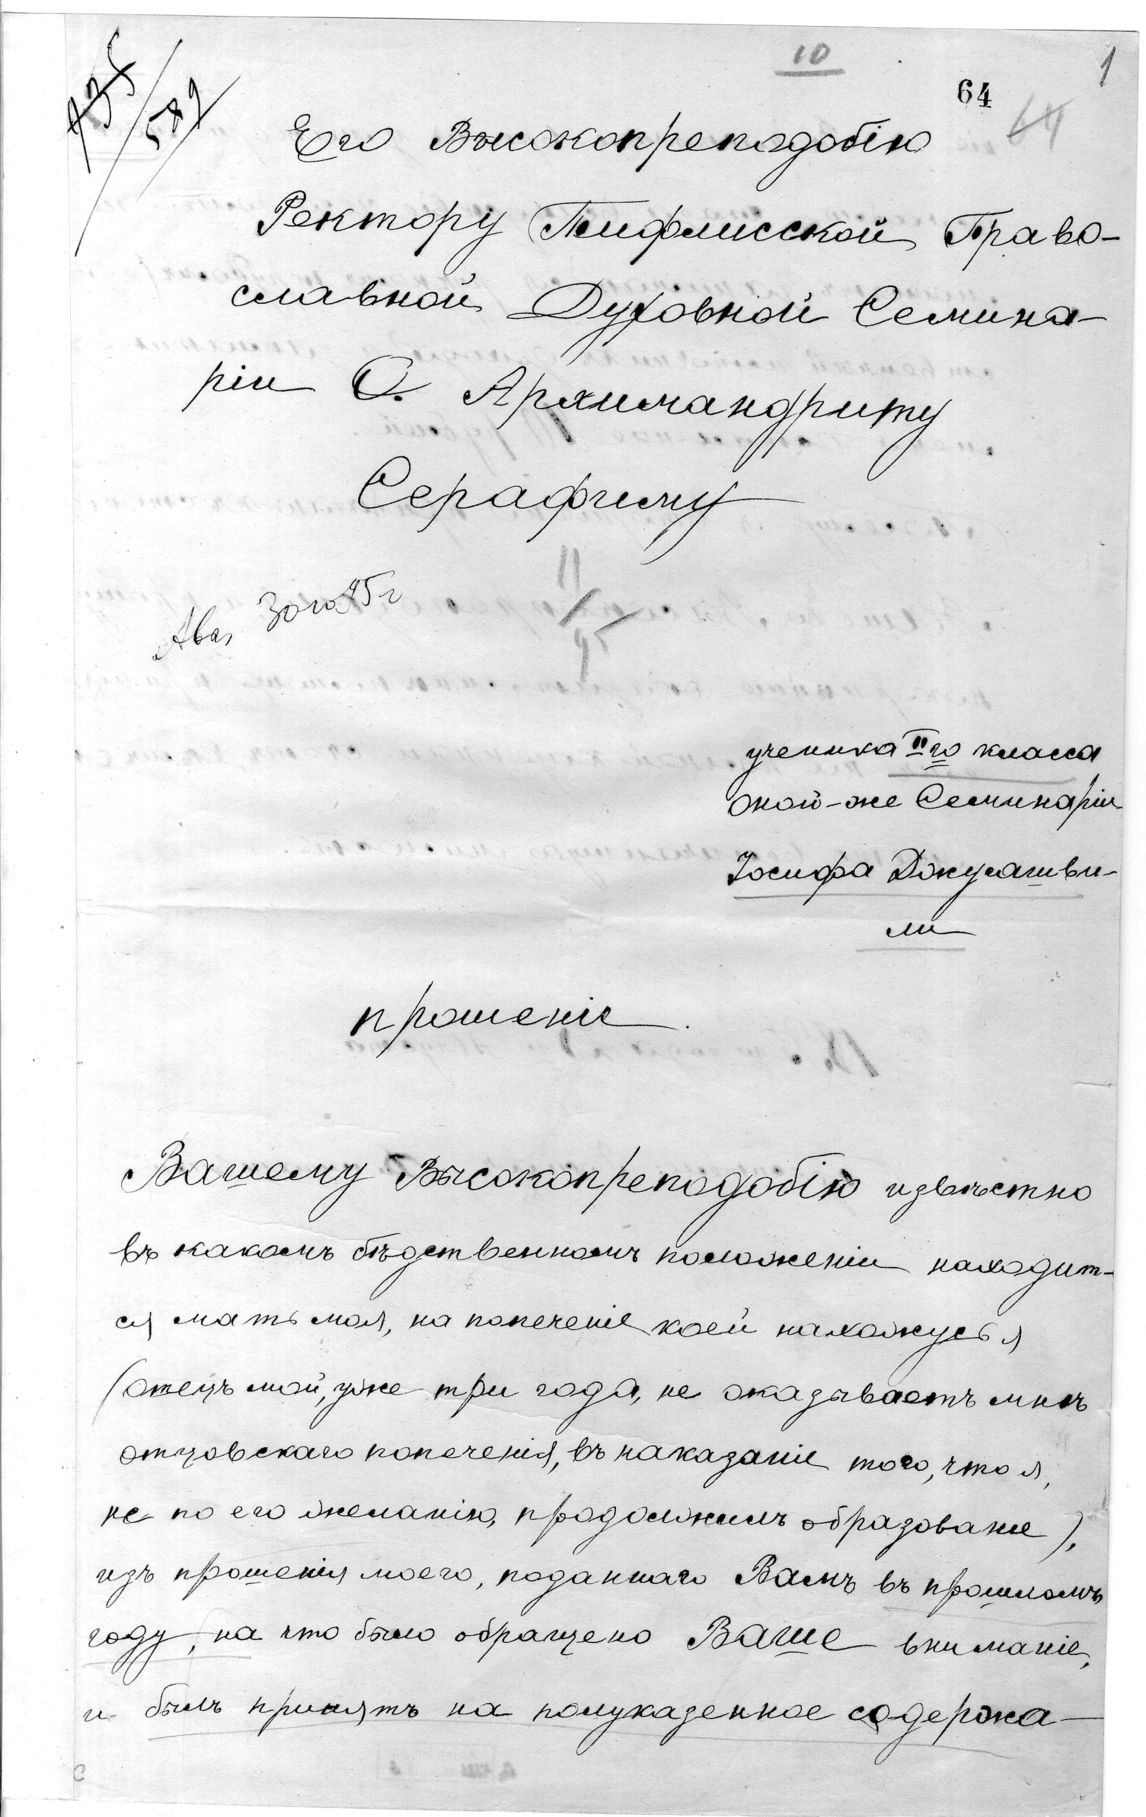 10
1
64
64
735
589
Его Высокопреподобію
Ректору Тифлисской Право-
славной Духовной Семина-
ріи О. Архимандриту
Серафиму
Авг. 30го 95 г
11
95
ученика II го класса
оной-же Семинаріи
Іосифа Джугашви-
ли
прошеніе.
Вашему Высокопреподобію извѣстно
въ какомъ бѣдственномъ положеніи находит-
ся мать моя, на попеченіе коей нахожусь я
(отецъ мой, уже три года, не оказываетъ мнѣ
отцовскаго попеченія, въ наказаніе того, что я,
не по его желанію, продолжилъ образованіе),
изъ прошенія моего, поданнаго Вамъ въ прошломъ
году, на что было обращено Ваше вниманіе,
и былъ принятъ на полуказенное содержа-